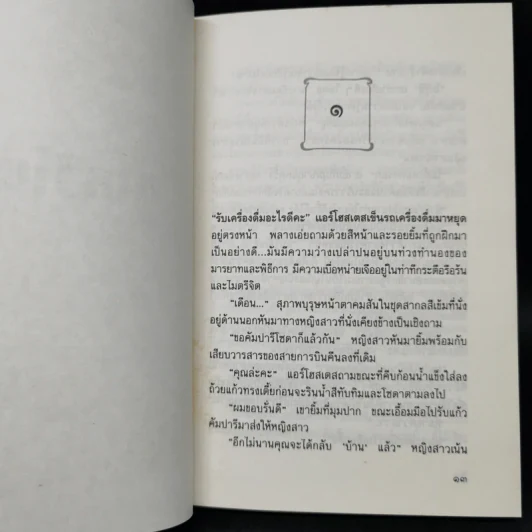 ๑
"รับเครื่องดื่มอะไรดีคะ" แอร์โฮสเตสเข็นรถเครื่องดื่มมาหยุด
อยู่ตรงหน้า พลางเอ่ยถามด้วยสีหน้าและรอยยิ้มที่ถูกฝึกมา
เป็นอย่างดี...มันมีความว่างเปล่าปนอยู่บนท่วงทำนองของ
มารยาทและพิธีการ มีความเบื่อหน่ายเจืออยู่ในท่าทีกระตือรือร้น
และไมตรีจิต
"เดือน..." สุภาพบุรุษหน้าตาคมสันในชุดสากลสีเข้มที่นั่ง
อยู่ด้านนอกหันมาทางหญิงสาวที่นั่งเคียงข้างเป็นเชิงถาม
"ขอคัมปารีโซดาก็แล้วกัน" หญิงสาวหันมายิ้มพร้อมกับ
เสียบวารสารของสายการบินคืนลงที่เดิม
"คุณล่ะคะ" แอร์โฮสเตสถามขณะที่คีบก้อนน้ำแข็งใส่ลง
ถ้วยแก้วทรงเตี้ยก่อนจะรินน้ำสีทับทิมและโซดาตามลงไป
"ผมขอบรั่นดี" เขายิ้มที่มุมปาก ขณะเอื้อมมือไปรับแก้ว
คัมปารีมาส่งให้หญิงสาว
"อีกไม่นานคุณจะได้กลับ 'บ้าน' แล้ว" หญิงสาวเน้น
๑๓